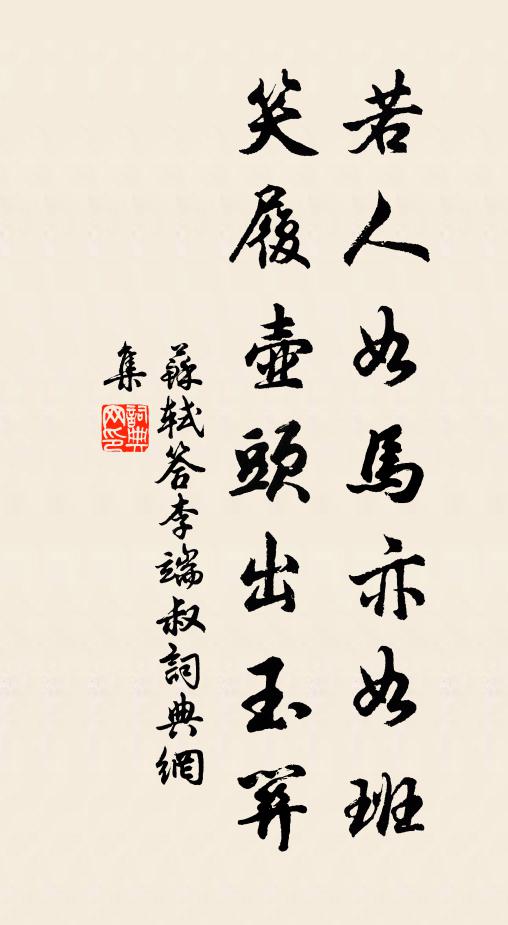 若人如馬亦如班
笑履壺頭出玉關
蘇軾答李端叔詞典網
集
詞典網印